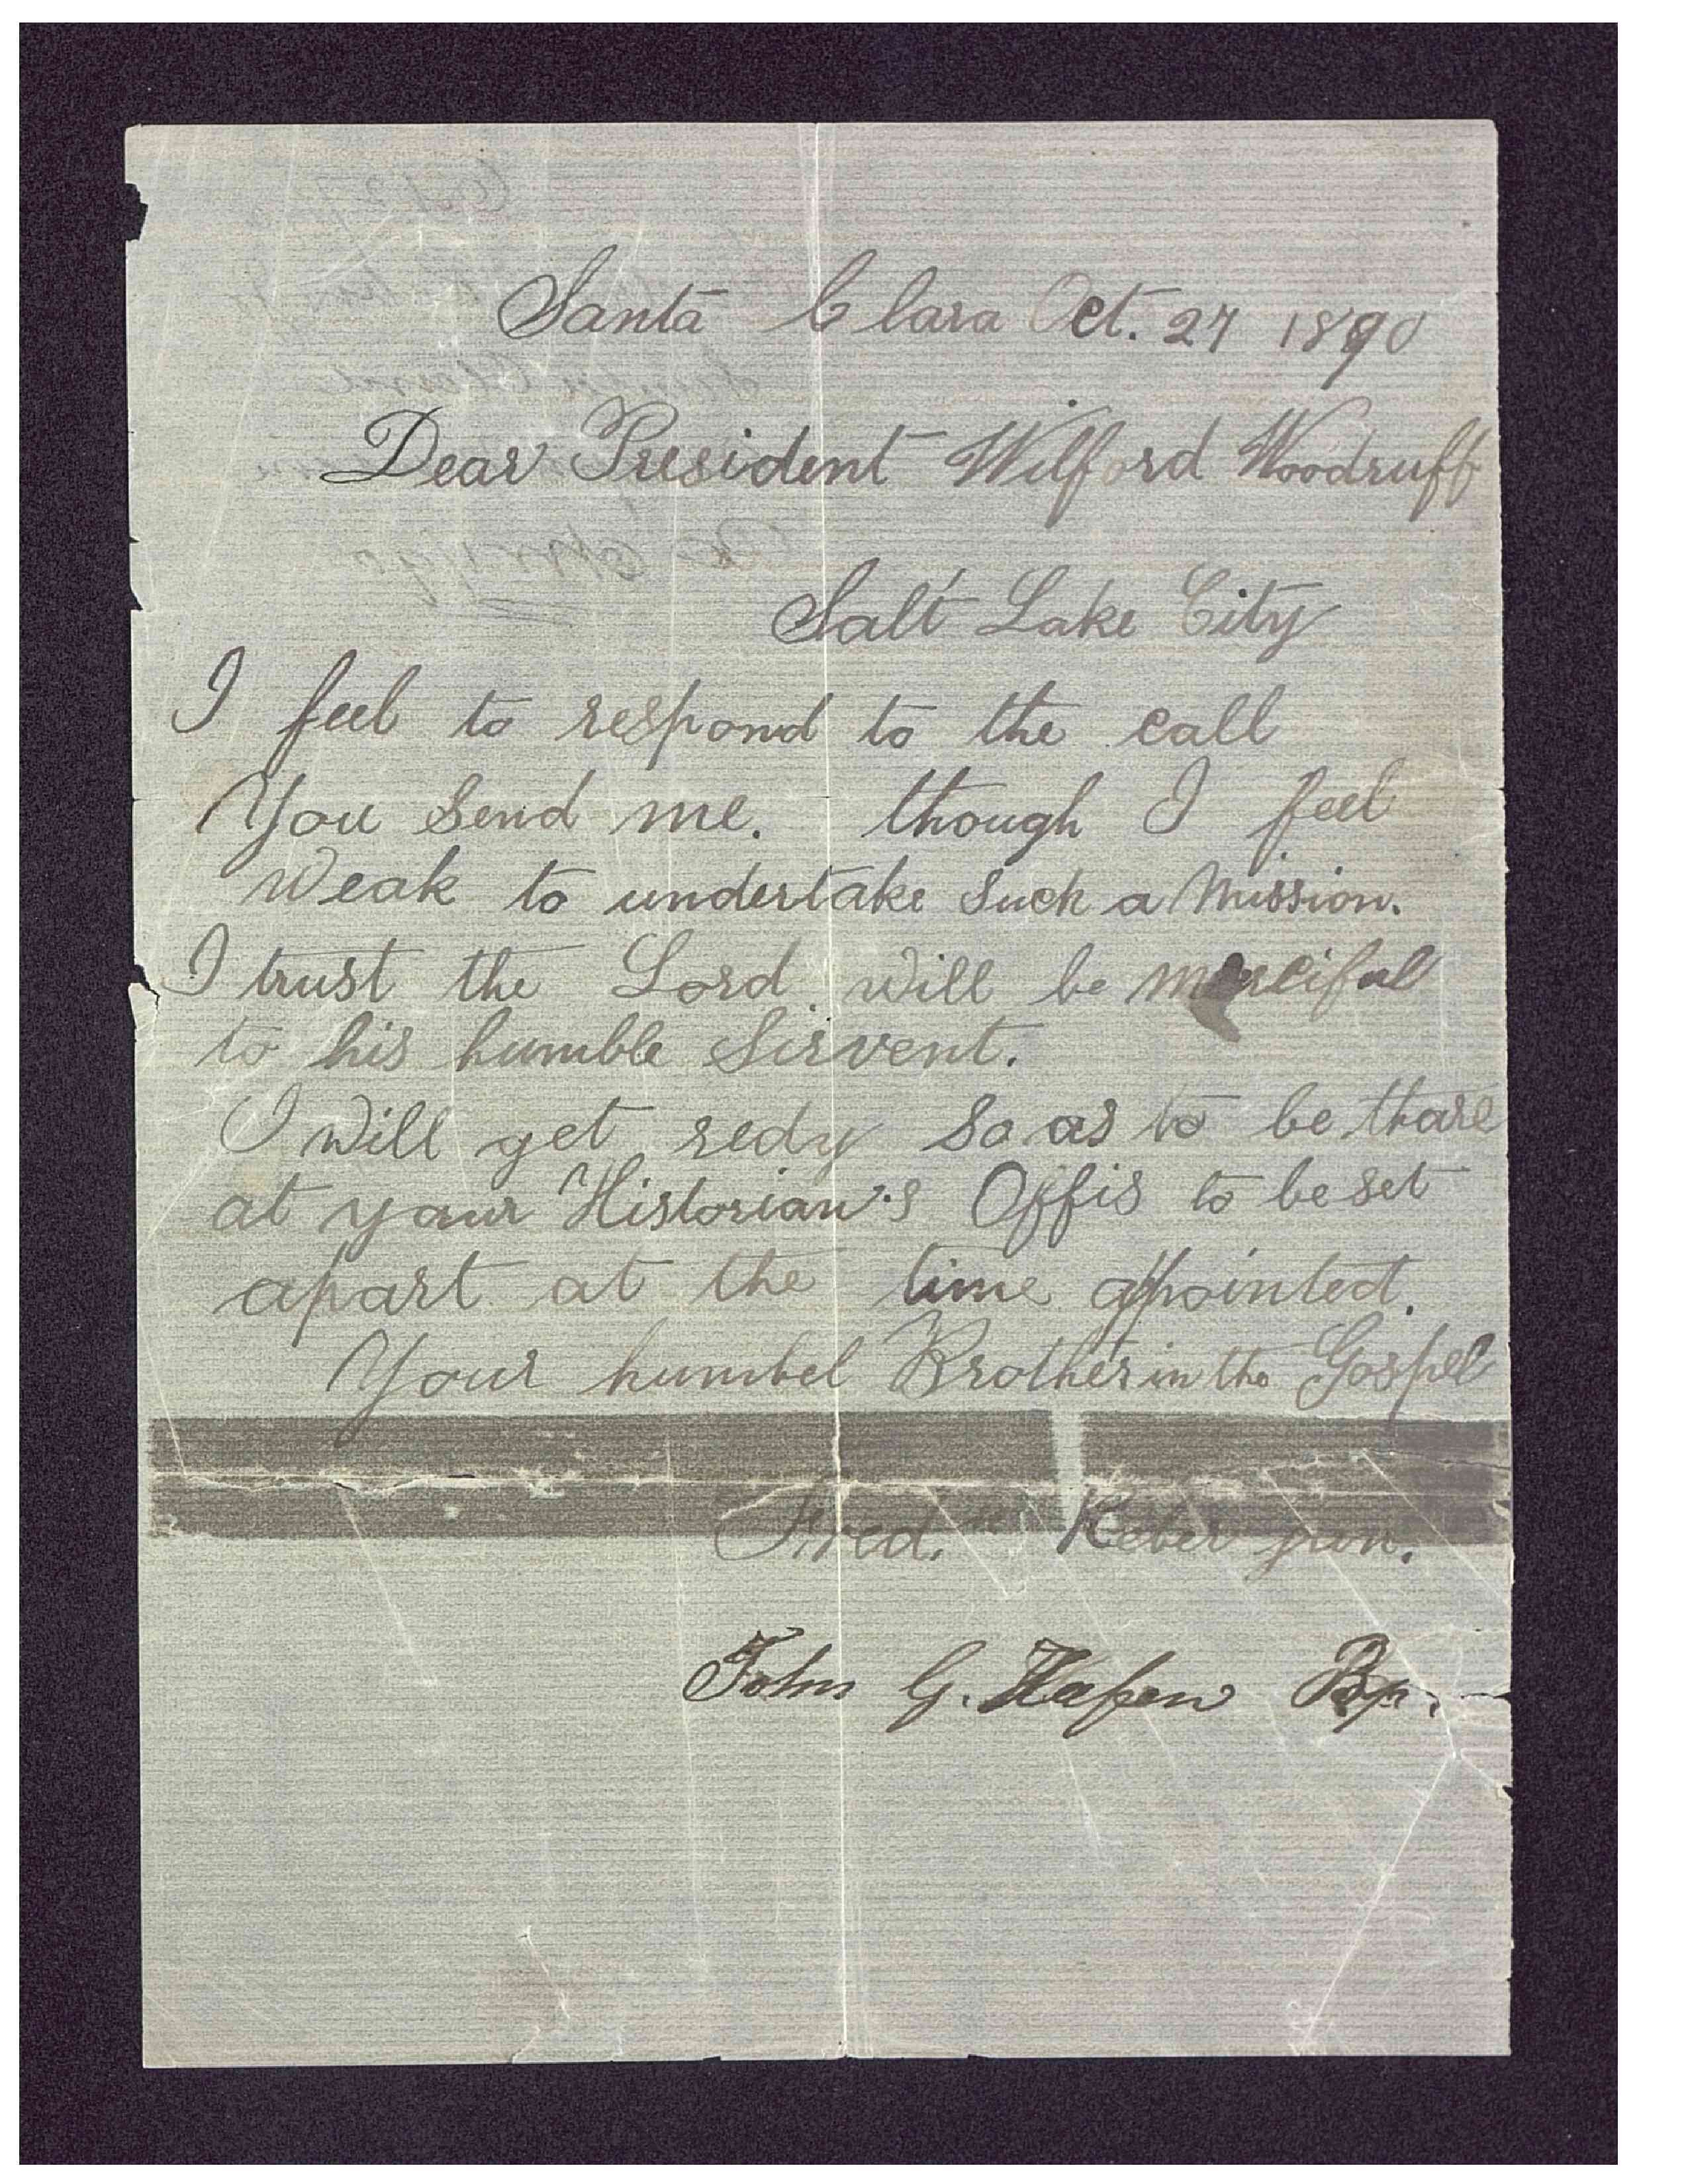 Santa Clara Oct. 27 1890
Dear President Wilford Woodruff
Salt Lake City
I feel to respond to the call
You Send me. though I feel
Weak to undertake Such a Mission.
I trust the Lord will be merciful
to his humble Sirvent.
I will get redy So as to be thare
at your Historian's Offis to be set
apart at the time appointed.
Your humbel Brother in the Gospel
Fred. Reber jun.
John G. Hafen Bp.